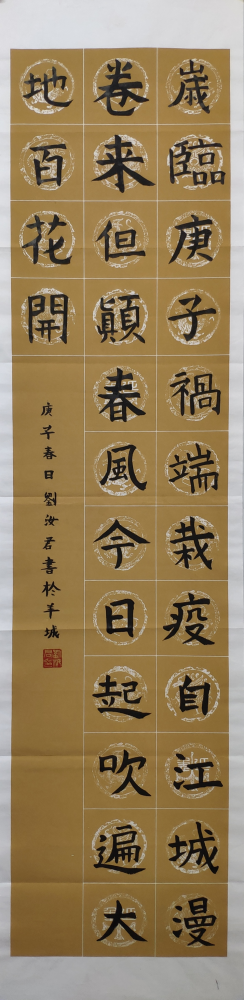 歲臨庚子禍端栽疫自江城漫
卷来但顚春風今日起吹遍大
地百花開
庚子春日劉汝君書於羊城